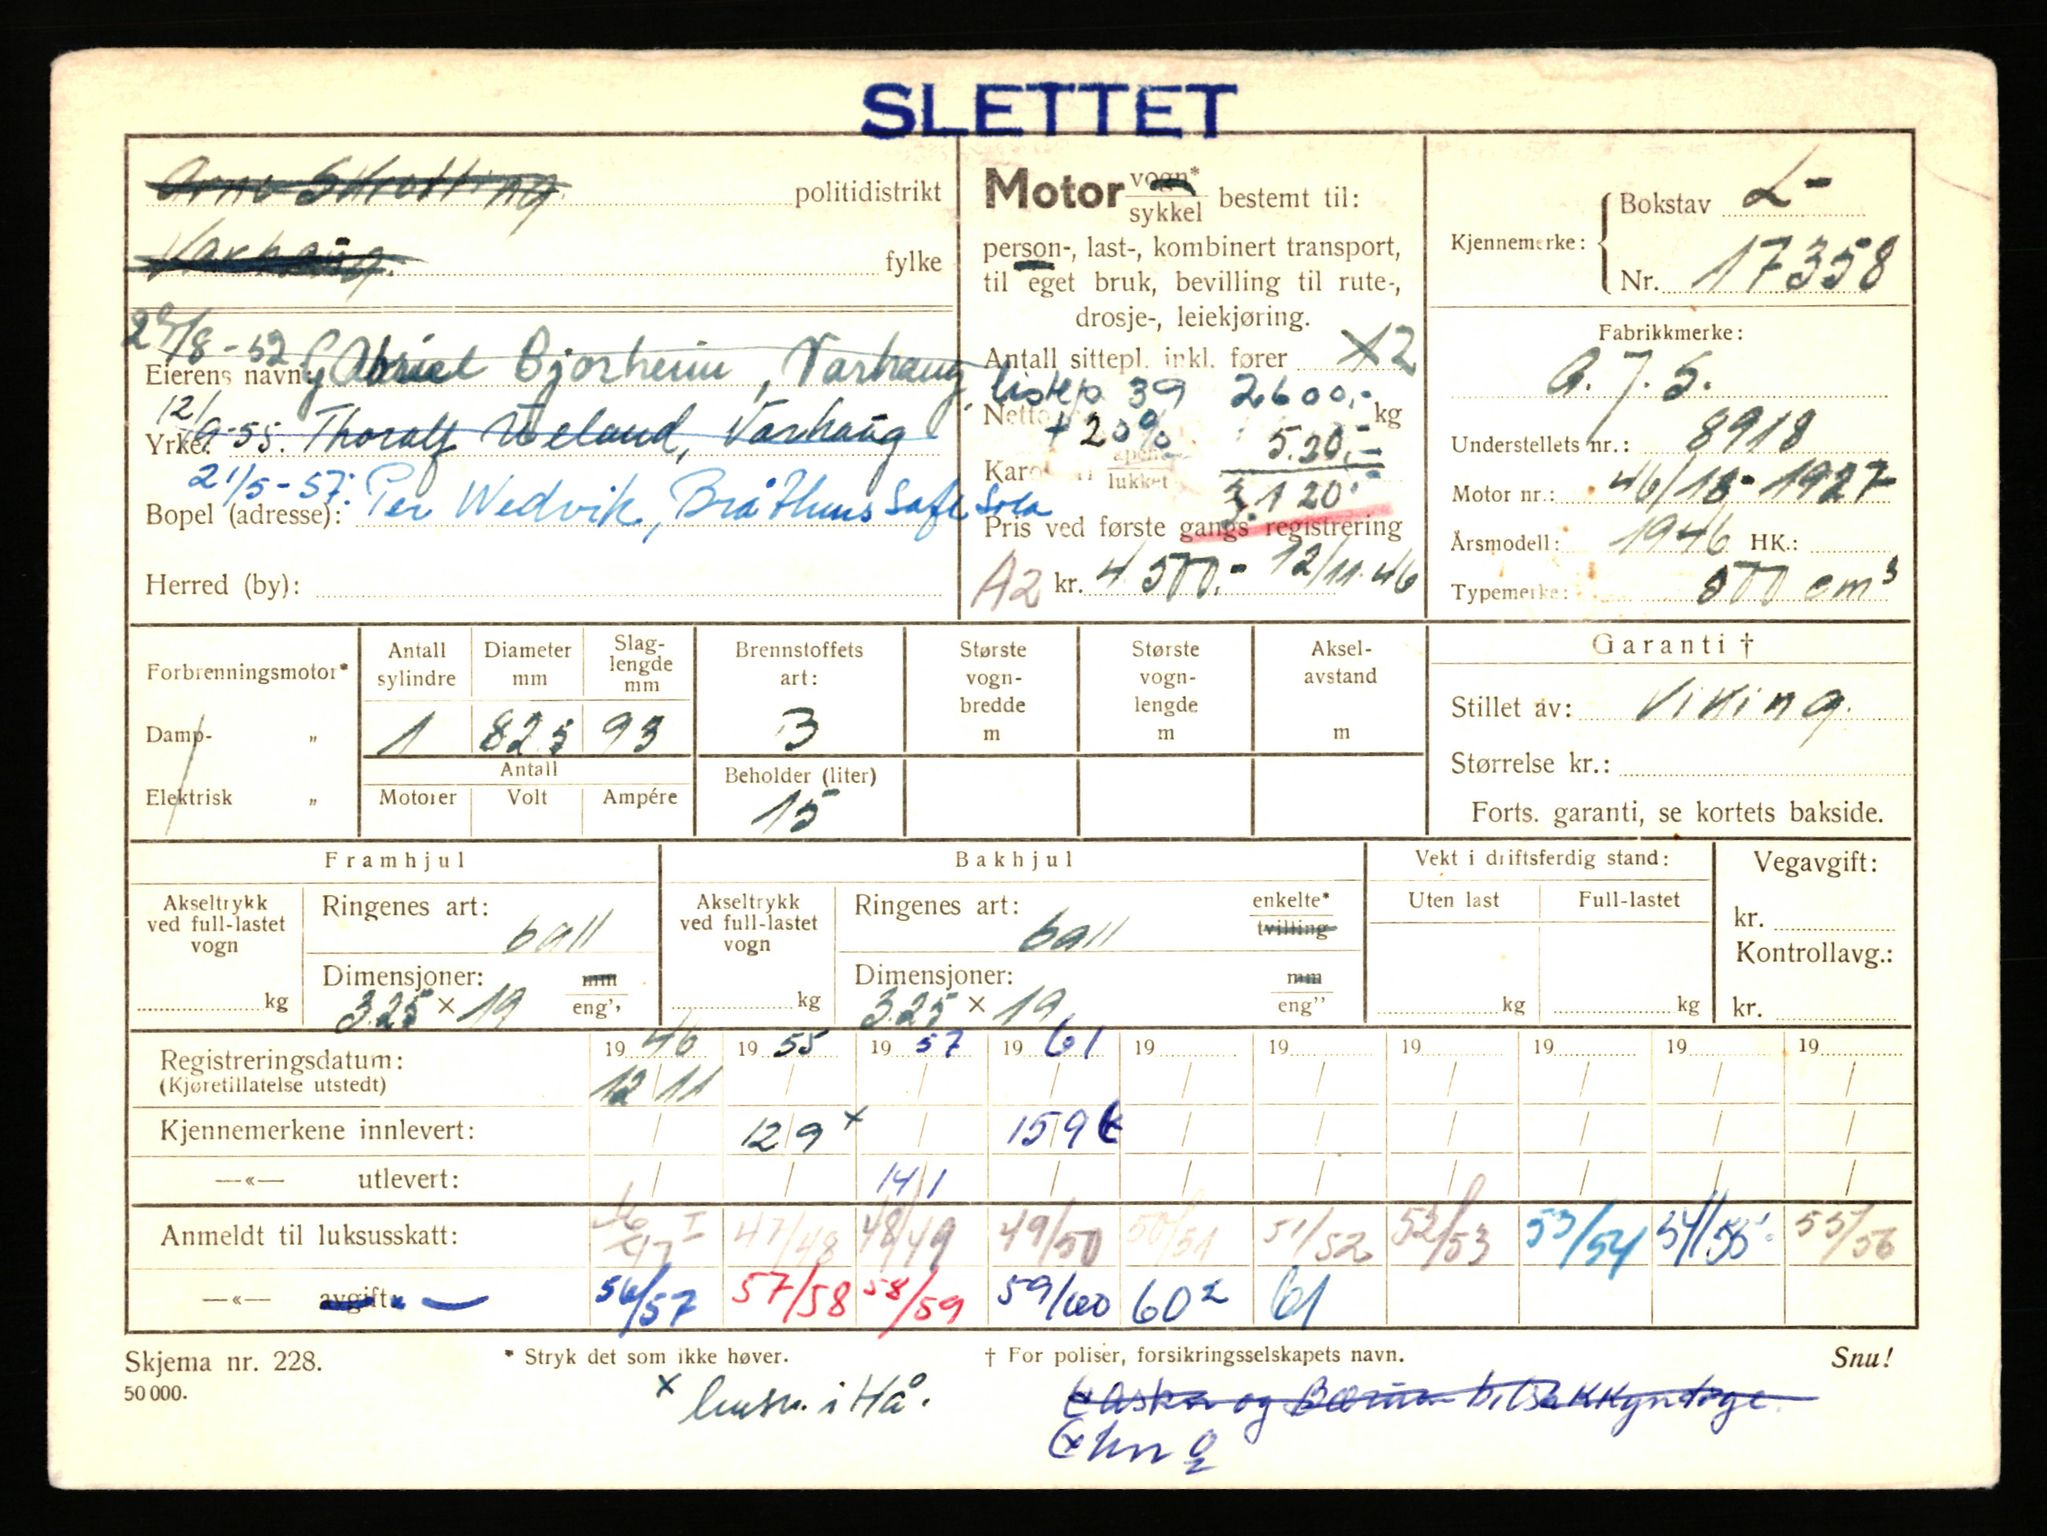 SLETTET
Arne politidistrikt
Varhaug. fylke
Motor vogn* / sykkel bestemt til:
person-, last-, kombinert transport,
til eget bruk, bevilling til rute-,
drosje-, leiekjøring.
Antall sittepl. inkl. fører X2
Kjennemerke: Bokstav L-
Nr. 17358
Eierens navn: 29/8-52 Gabriel Bjorheim, Varhaug
Yrke: 12/9-55. Thoralf Ueland, Varhaug
Bopel (adresse): 21/5-57: Per Wedvik, Bråthus Safe Sola
Herred (by):
listep 39 2600,-
Netto kg
+ 20% 520,-
lukket 3.120.-
Pris ved første gangs registrering
A2 kr. 4.500,- 12/11.46
Fabrikkmerke:
A.J.S.
Understellets nr.: 8918
Motor nr.: 46/18-1927
Årsmodell: 1946 HK.:
Typemerke: 500 cm³
Forbrenningsmotor*
Damp- „
Elektrisk „
Antall sylindre 1
Diameter mm 82.5
Slag- lengde mm 93
Antall
Motorer Volt Ampére
Brennstoffets art: B
Beholder (liter) 15
Største vogn- bredde m
Største vogn- lengde m
Aksel- avstand m
Garanti †
Stillet av: Viking.
Størrelse kr.:
Forts. garanti, se kortets bakside.
Framhjul
Akseltrykk ved full-lastet vogn kg
Ringenes art: ball
Dimensjoner: 3.25 × 19 mm / eng''
Bakhjul
Akseltrykk ved full-lastet vogn kg
Ringenes art: ball enkelte* / tvilling
Dimensjoner: 3.25 × 19 mm / eng''
Vekt i driftsferdig stand:
Uten last Full-lastet
kg kg
Vegavgift:
kr.
Kontrollavg.:
kr.
Registreringsdatum: 19 46 19 55 19 57 19 61 19 19 19 19 19 19
(Kjøretillatelse utstedt) 12/11 / / / / / / / / /
Kjennemerkene innlevert: / 12/9 x / 15/9 / / / / / /
—«— utlevert: / / 14/1 / / / / / / /
Anmeldt til luksusskatt: 46/47 I 47/48 48/49 49/50 50/51 51/52 52/53 53/54 54/55 55/56
—«— avgift: 56/57 57/58 58/59 59/60 60² 61
Skjema nr. 228. * Stryk det som ikke høver. † For poliser, forsikringsselskapets navn. Snu!
50 000.
x i Hå.
og